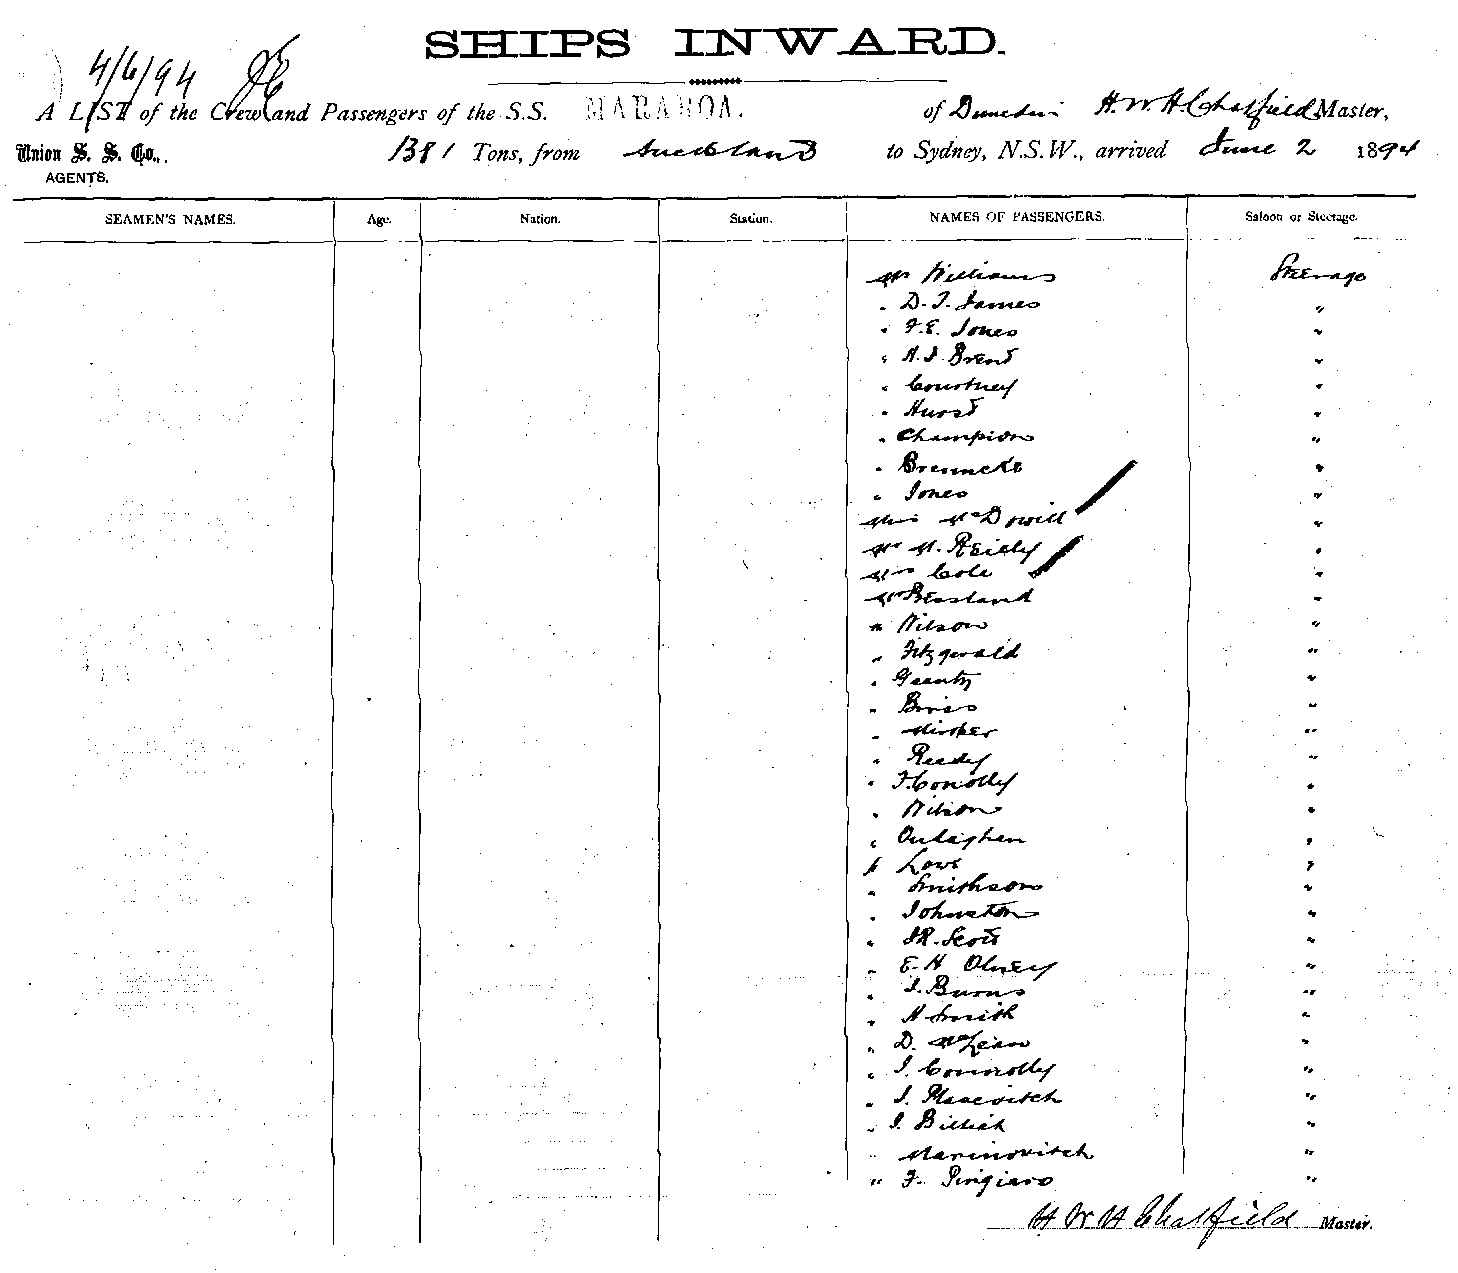 SHIPS INWARD.
4/6/94
A LIST of the Crew and Passengers of the S.S. MARAROA. of Dunedin H.W.H. Chatfield Master,
Union S. S. Co., 1381 Tons, from Auckland to Sydney, N.S.W., arrived June 2 1894
AGENTS.
SEAMEN'S NAMES. Age. Nation. Station. NAMES OF PASSENGERS. Saloon or Steerage.
Mr Williams Steerage
" D. T. James "
" F. E. Jones "
" H. J. Brent "
" Courtney "
" Hurst "
" Champion "
" Brenncke "
" Jones "
McDowell "
Mr M. Reilly "
Cole "
Mr "
" Wilson "
" Fitzgerald "
" "
" "
" "
" Reedy "
" F. Conolly "
" Wilson "
" "
" Lowe "
" Smithson "
" Johnston "
" J R. Scott "
" E. H Olney "
" J. Burns "
" H Smith "
" D. McLean "
" J. Connolly "
" "
" J. "
" Marinovitch "
" F. "
H W H Chatfield Master.